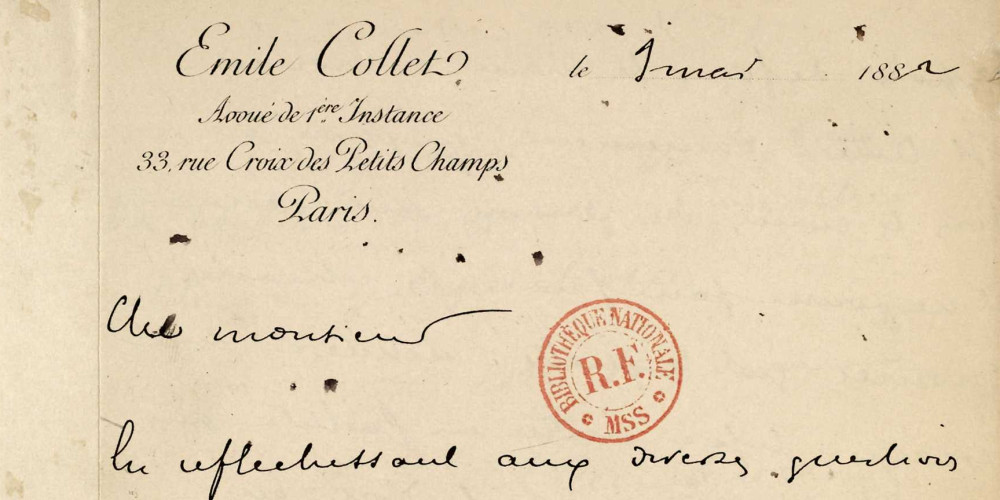 Emile Collet
le 9 mai 1882
Avoué de 1ère Instance
33, rue Croix des Petits Champs
Paris.
Cher monsieur
BIBLIOTHÈQUE NATIONALE
R.F.
MSS
En reflechissant aux diverses questions